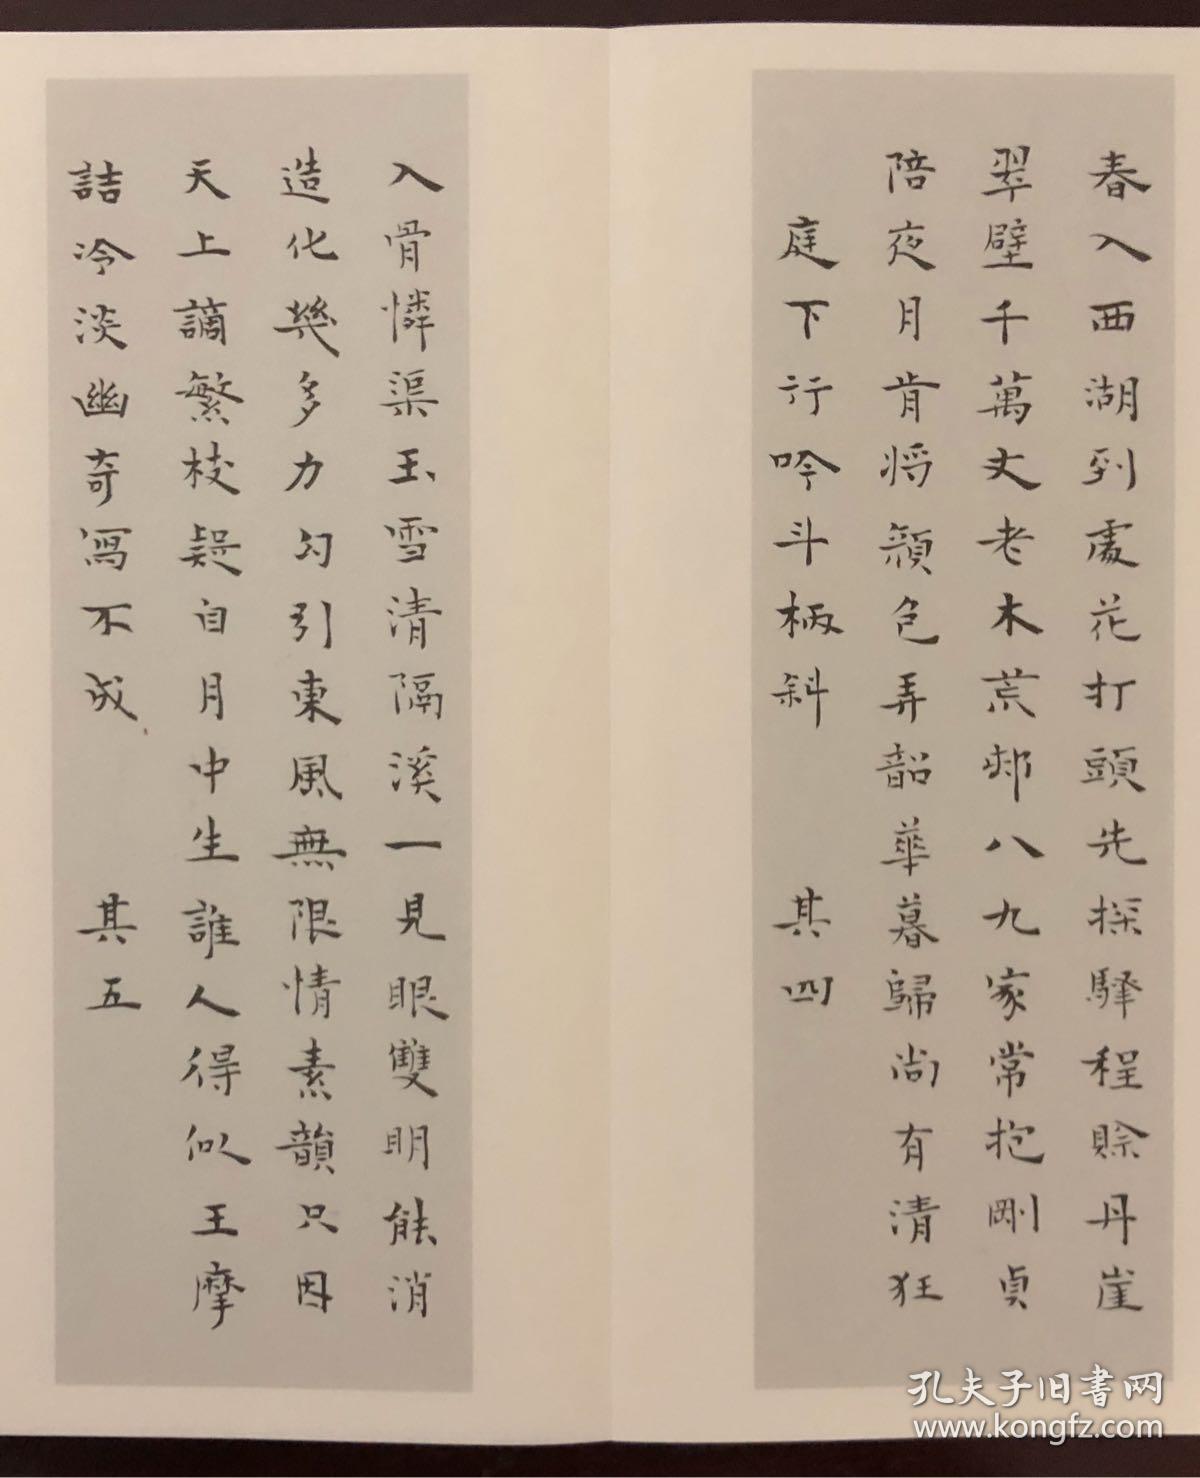 春入西湖到處花打頭先探驛程賒丹崖
翠壁千萬丈老木荒邨八九家常抱剛貞
陪夜月肯將顏色弄韶華暮歸尚有清狂
庭下行吟斗柄斜 其四
入骨憐渠玉雪清隔溪一見眼雙明能消
造化幾多力勾引東風無限情素韻只因
天上謫繁枝疑自月中生誰人得似王摩
詰冷淡幽奇寫不成 其五
孔夫子旧書网
www.kongfz.com